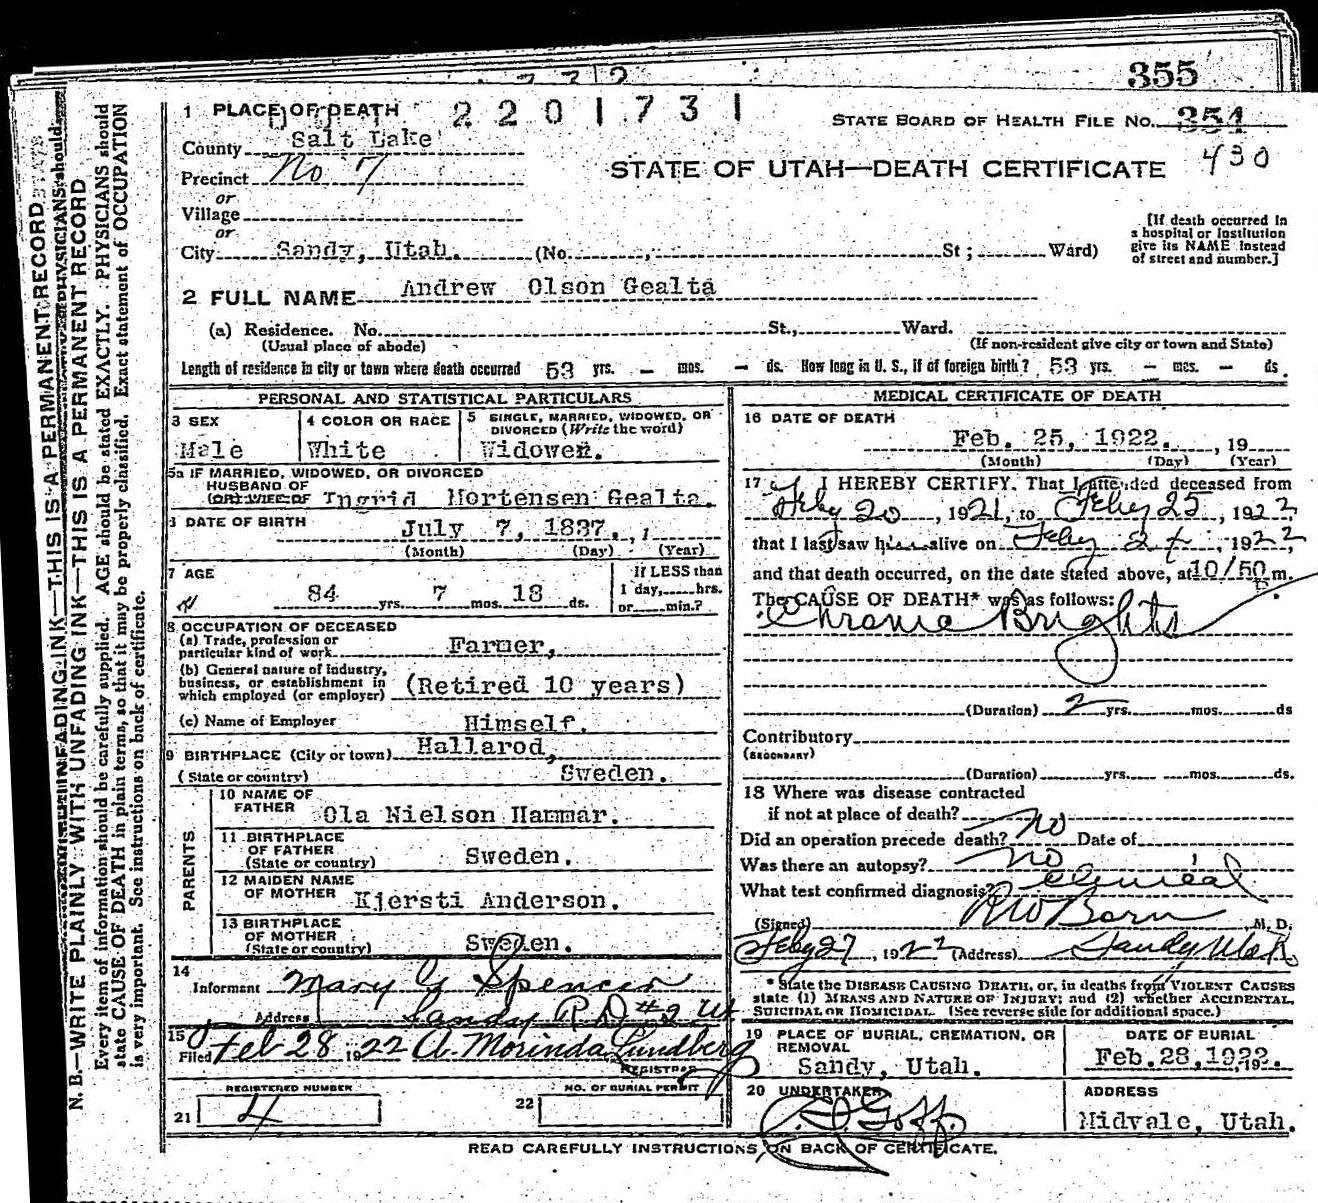 355
1 PLACE OF DEATH 2201731
STATE BOARD OF HEALTH FILE NO. 354
County Salt Lake
430
STATE OF UTAH—DEATH CERTIFICATE
Precinct No 7
or
Village
or
City Sandy, Utah. (No. , St; Ward)
[If death occurred in
a hospital or institution
give its NAME instead
of street and number.]
2 FULL NAME Andrew Olson Gealta
(a) Residence. No. St., Ward.
(Usual place of abode) (If non-resident give city or town and State)
Length of residence in city or town where death occurred 53 yrs. – mos. – ds. How long in U. S., if of foreign birth? 53 yrs. – mos. – ds.
PERSONAL AND STATISTICAL PARTICULARS
3 SEX
Male
4 COLOR OR RACE
White
5 SINGLE, MARRIED, WIDOWED, OR
DIVORCED (Write the word)
Widower.
5a IF MARRIED, WIDOWED, OR DIVORCED
HUSBAND OF
(OR) WIFE OF Ingrid Mortensen Gealta.
6 DATE OF BIRTH July 7, 1837.
(Month) (Day) (Year)
7 AGE
84 yrs. 7 mos. 18 ds.
If LESS than
1 day, hrs.
or min.?
8 OCCUPATION OF DECEASED
(a) Trade, profession or
particular kind of work Farmer,
(b) General nature of industry,
business, or establishment in
which employed (or employer) (Retired 10 years)
(c) Name of Employer Himself.
9 BIRTHPLACE (City or town) Hallarod,
(State or country) Sweden.
PARENTS
10 NAME OF
FATHER Ola Nielson Hammar.
11 BIRTHPLACE
OF FATHER
(State or country) Sweden.
12 MAIDEN NAME
OF MOTHER Kjersti Anderson.
13 BIRTHPLACE
OF MOTHER
(State or country) Sweden.
14
Informant Mary G Spencer
Address Sandy R D #2 Ut
15
Filed Feb 28 1922 A. Morinda Lundberg
REGISTRAR
REGISTERED NUMBER
21 4
NO. OF BURIAL PERMIT
22
MEDICAL CERTIFICATE OF DEATH
16 DATE OF DEATH
Feb. 25, 1922. , 19
(Month) (Day) (Year)
17 I HEREBY CERTIFY, That I attended deceased from
Feby 20, 1921, to Feby 25, 1922,
that I last saw him alive on Feby 24, 1922,
and that death occurred, on the date stated above, at 10/50 m.
The CAUSE OF DEATH* was as follows:
Chronic Brights
(Duration) 2 yrs. mos. ds
Contributory
(SECONDARY)
(Duration) yrs. mos. ds.
18 Where was disease contracted
if not at place of death?
Did an operation precede death? No Date of
Was there an autopsy? No
What test confirmed diagnosis? Clinical
(Signed) , M. D.
Feby 27, 1922 (Address) Sandy Utah
* State the DISEASE CAUSING DEATH, or, in deaths from VIOLENT CAUSES
state (1) MEANS AND NATURE OF INJURY; and (2) whether ACCIDENTAL,
SUICIDAL OR HOMICIDAL. (See reverse side for additional space.)
19 PLACE OF BURIAL, CREMATION, OR
REMOVAL
Sandy, Utah.
DATE OF BURIAL
Feb. 28, 1922. 19
20 UNDERTAKER
Goff.
ADDRESS
Midvale, Utah.
READ CAREFULLY INSTRUCTIONS ON BACK OF CERTIFICATE.
N. B.—WRITE PLAINLY WITH UNFADING INK—THIS IS A PERMANENT RECORD
Every item of information should be carefully supplied. AGE should be stated EXACTLY. PHYSICIANS should
state CAUSE OF DEATH in plain terms, so that it may be properly classified. Exact statement of OCCUPATION
is very important. See instructions on back of certificate.